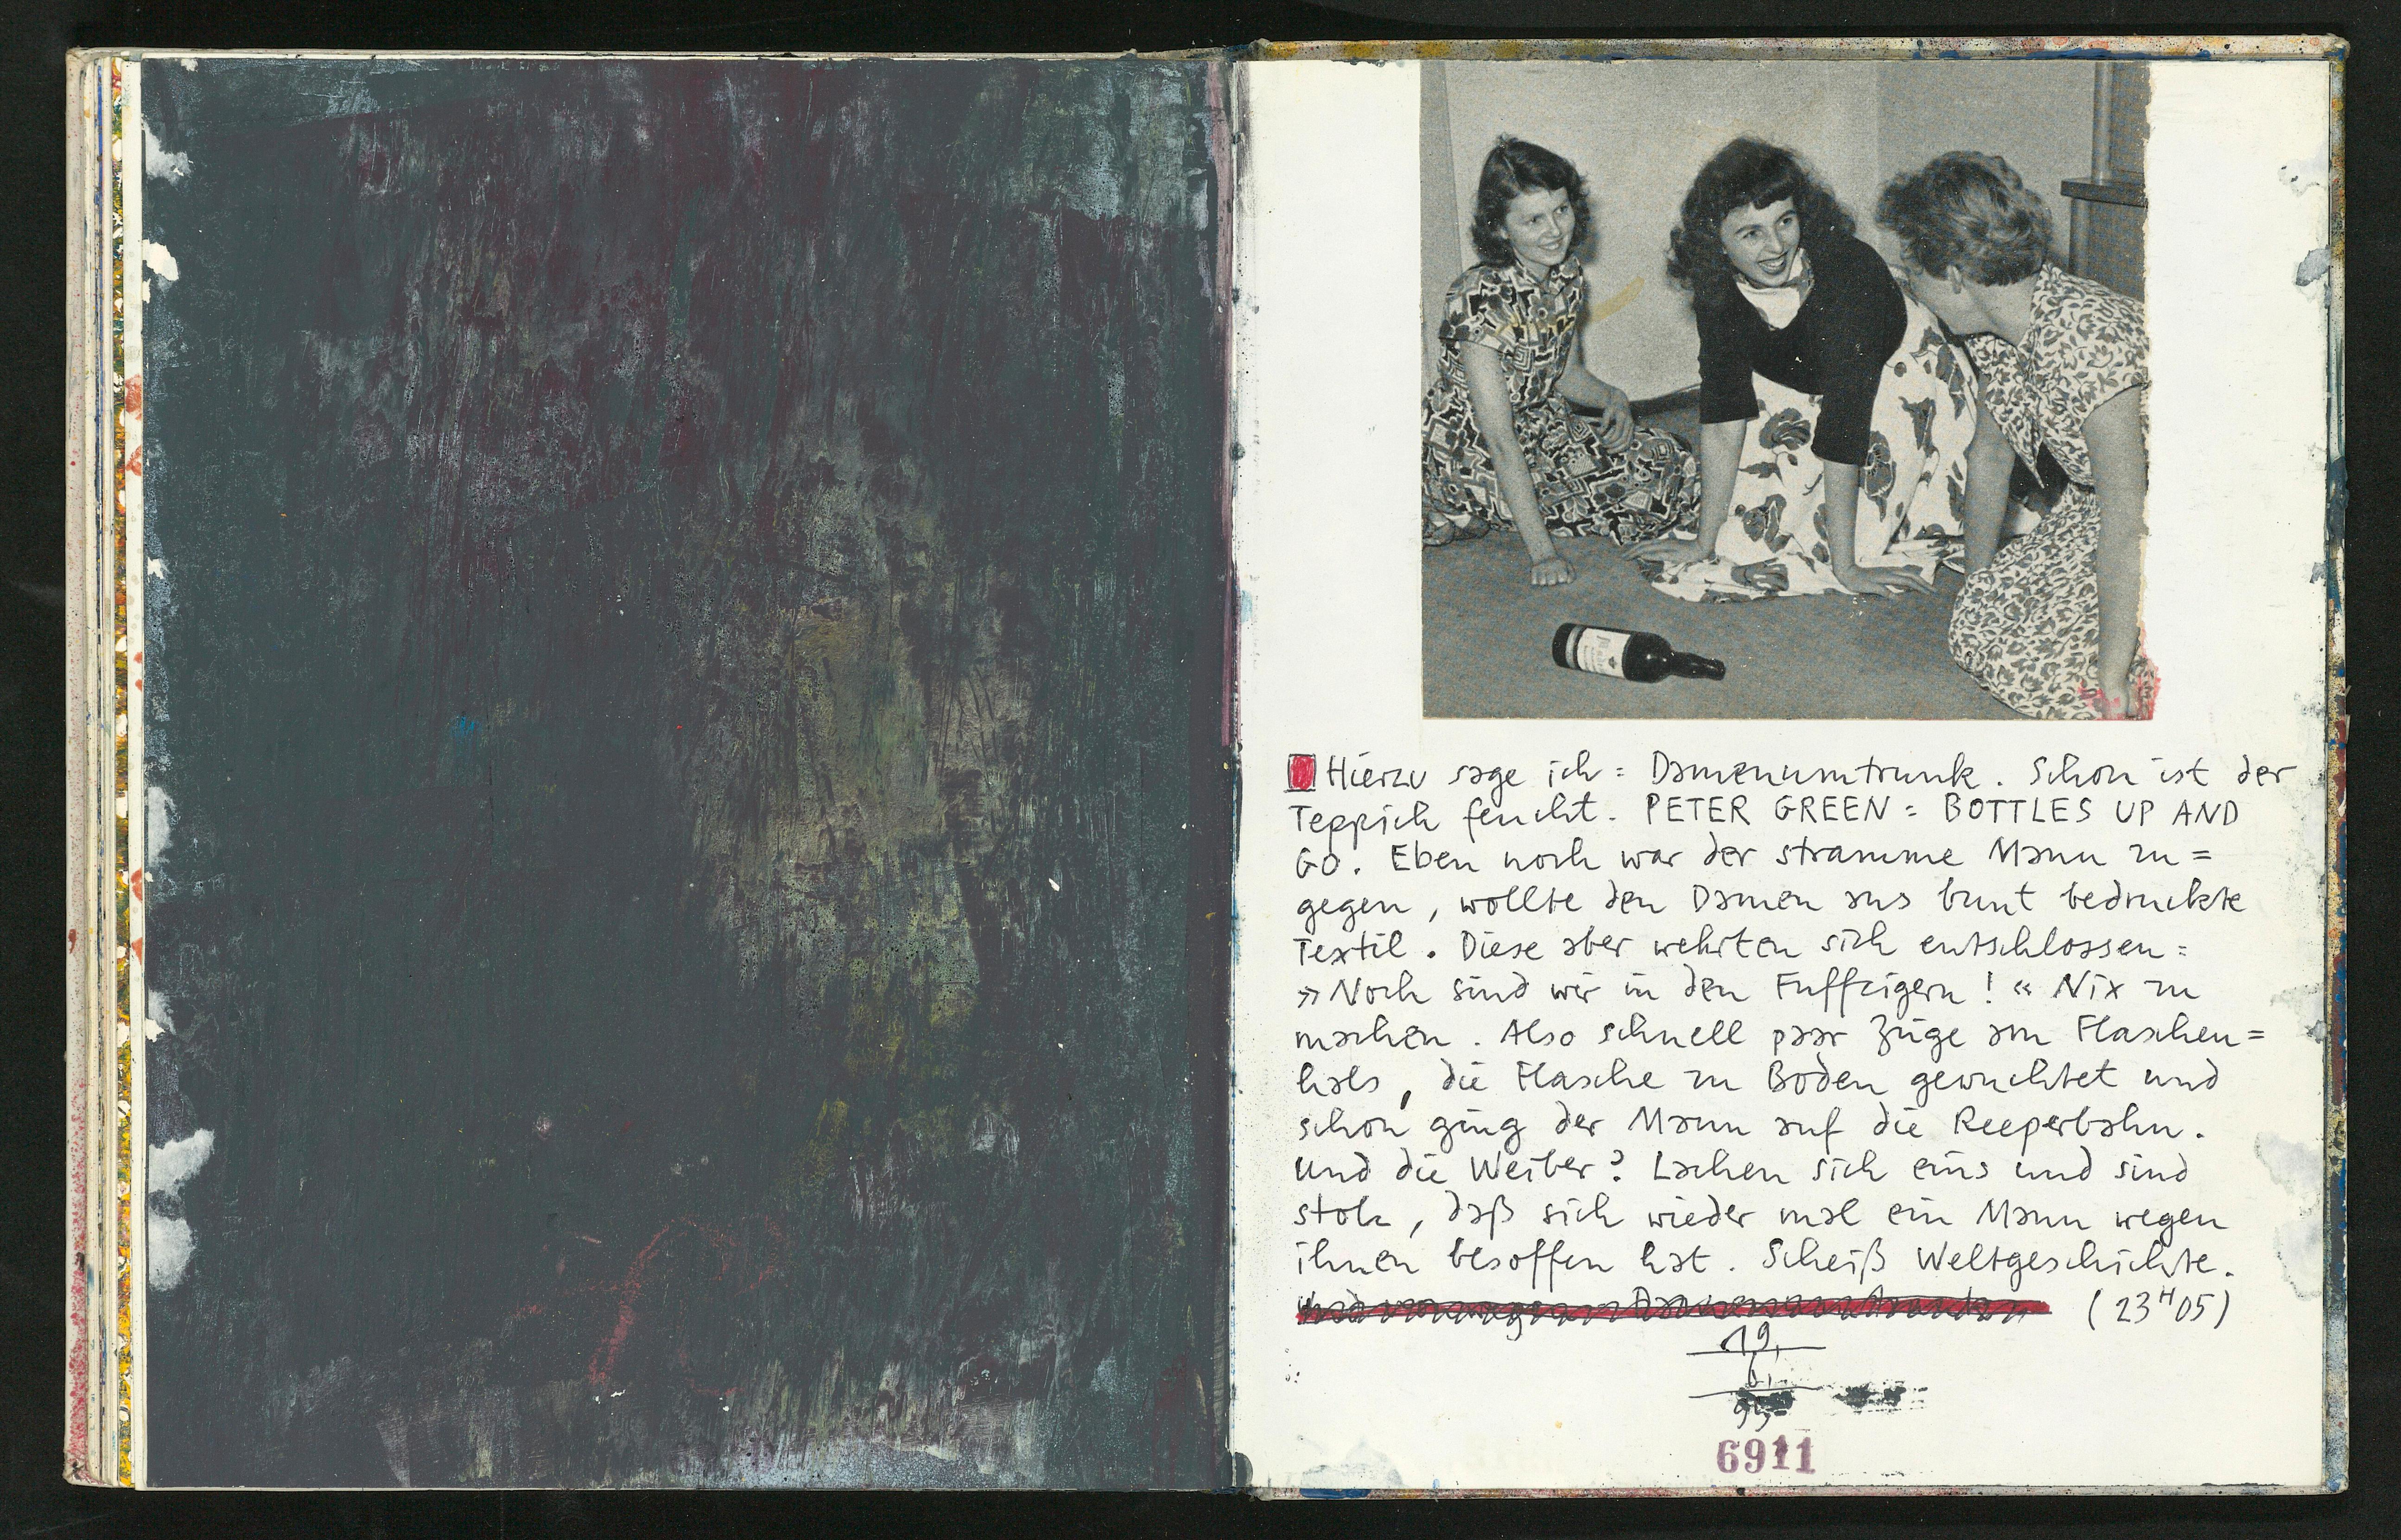 Hierzu sage ich = Damenumtrunk. Schon ist der
Teppich feucht. PETER GREEN = BOTTLES UP AND
GO. Eben noch war der stramme Mann zu=
gegen, wollte den Damen ans bunt bedruckte
Textil. Diese aber wehrten sich entschlossen =
»Noch sind wir in den Fuffzigern!« Nix zu
machen. Also schnell paar Züge am Flaschen=
hals, die Flasche zu Boden gewuchtet und
schon ging der Mann auf die Reeperbahn.
Und die Weiber? Lachen sich eins und sind
stolz, daß sich wieder mal ein Mann wegen
ihnen besoffen hat. Scheiß Weltgeschichte.
(23H05)
19.
6911